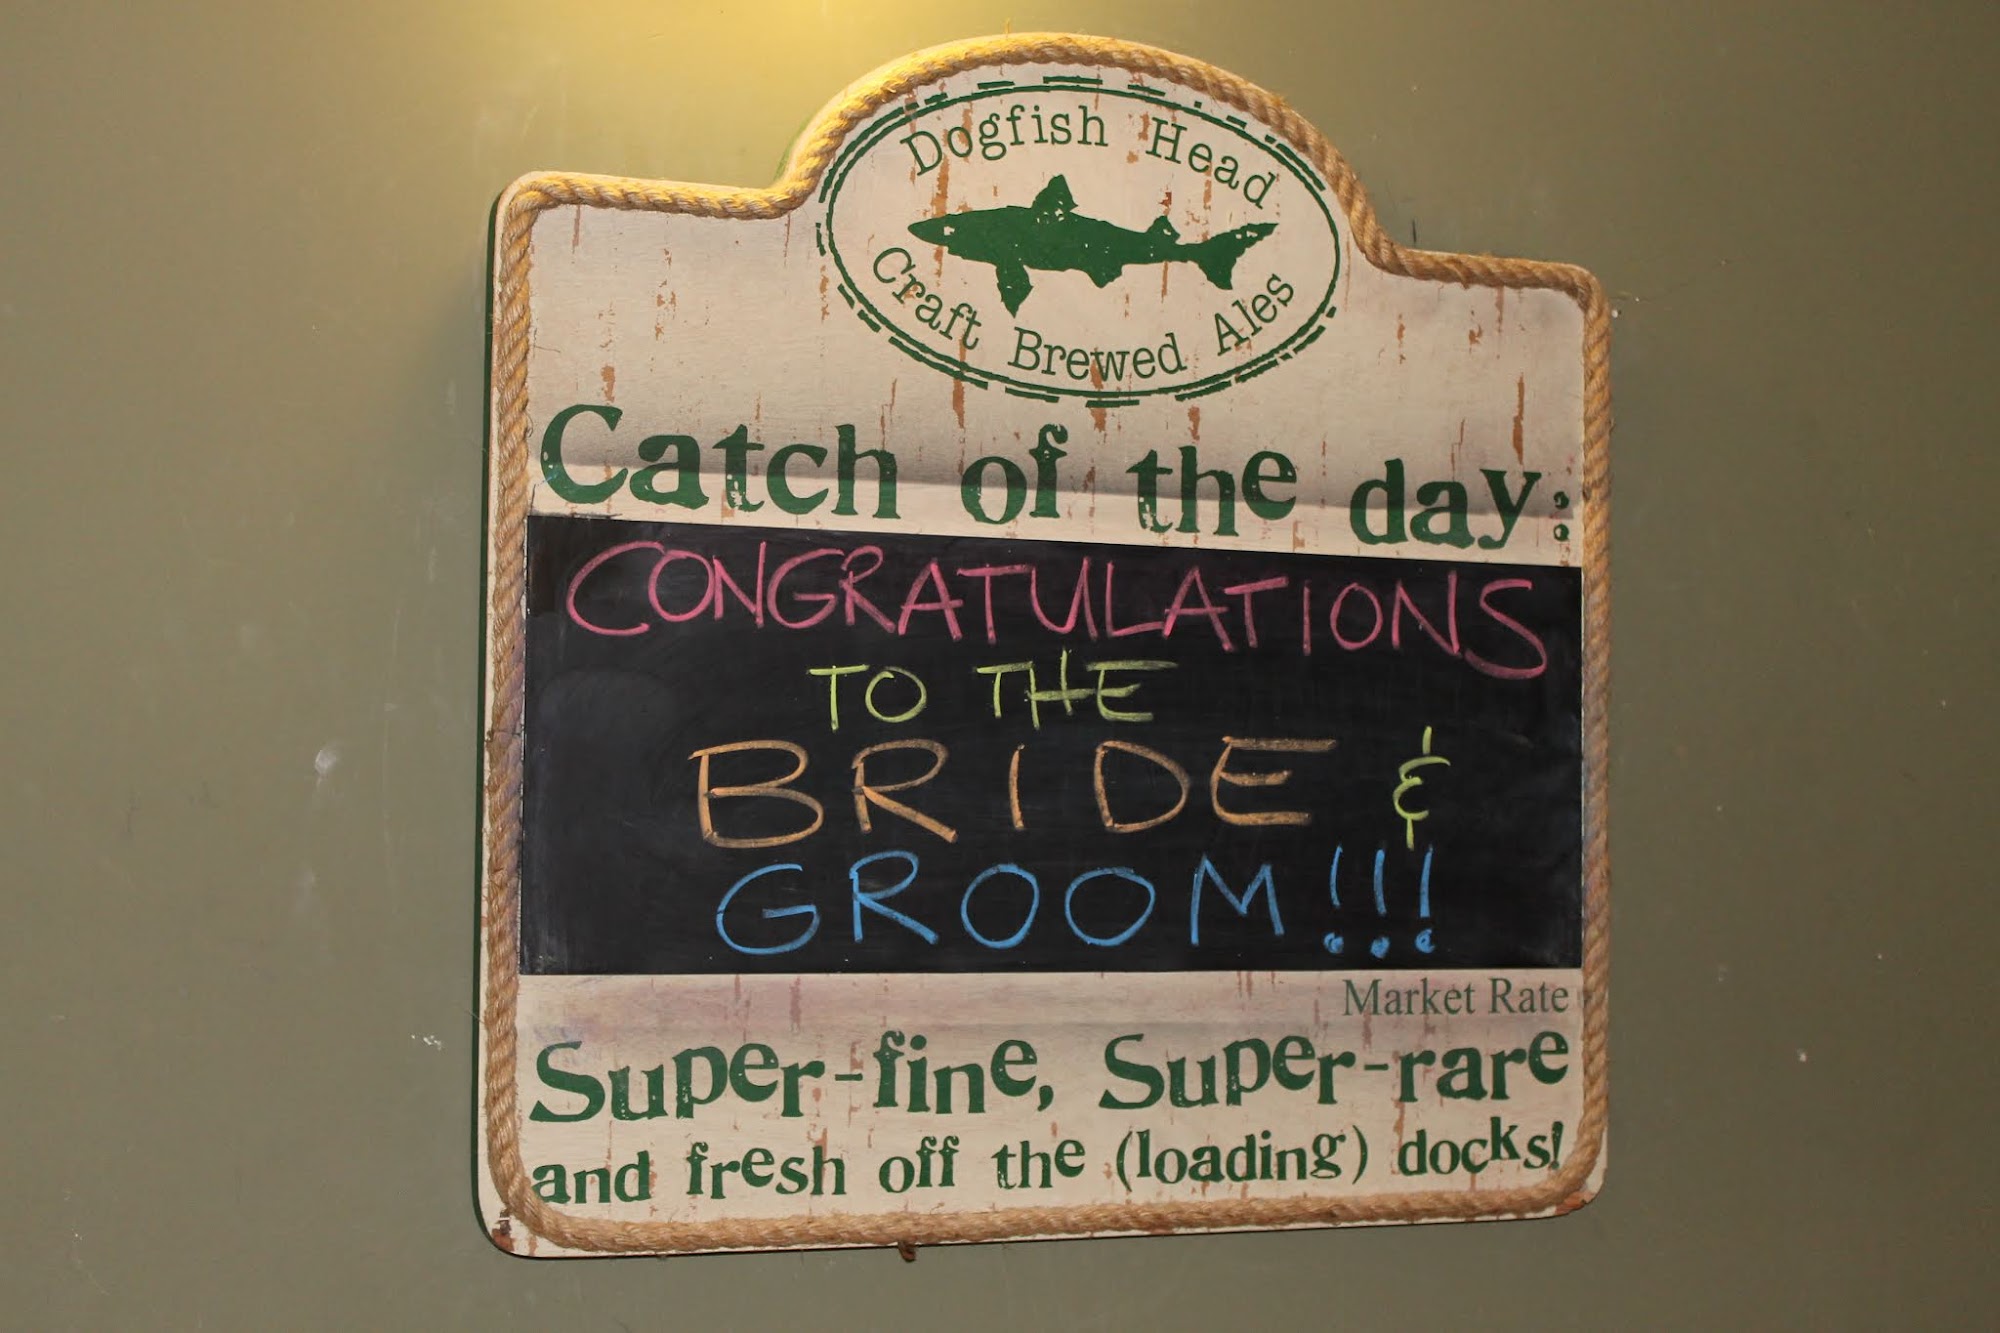 Dogfish Head
Craft Brewed Ales
Catch of the day:
CONGRATULATIONS
TO THE
BRIDE &
GROOM!!!
Market Rate
Super-fine, Super-rare
and fresh off the (loading) docks!